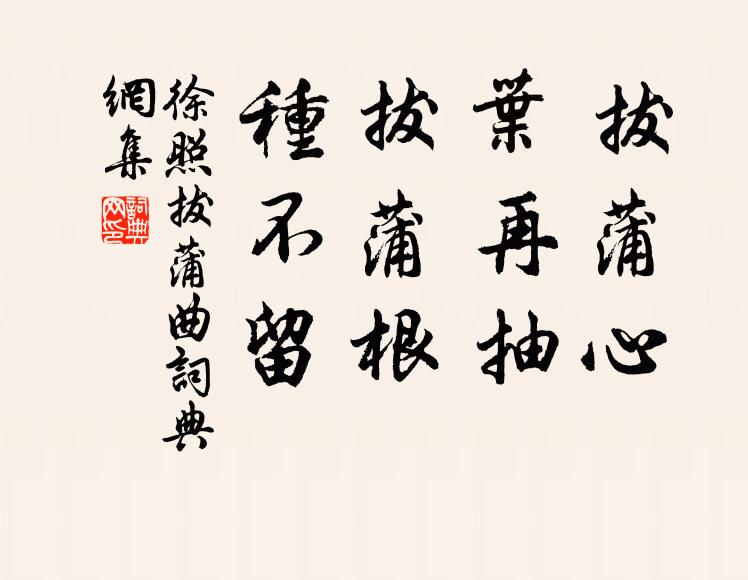 拔蒲心
葉再抽
拔蒲根
種不留
徐照拔蒲曲詞典
網集
詞典
网印